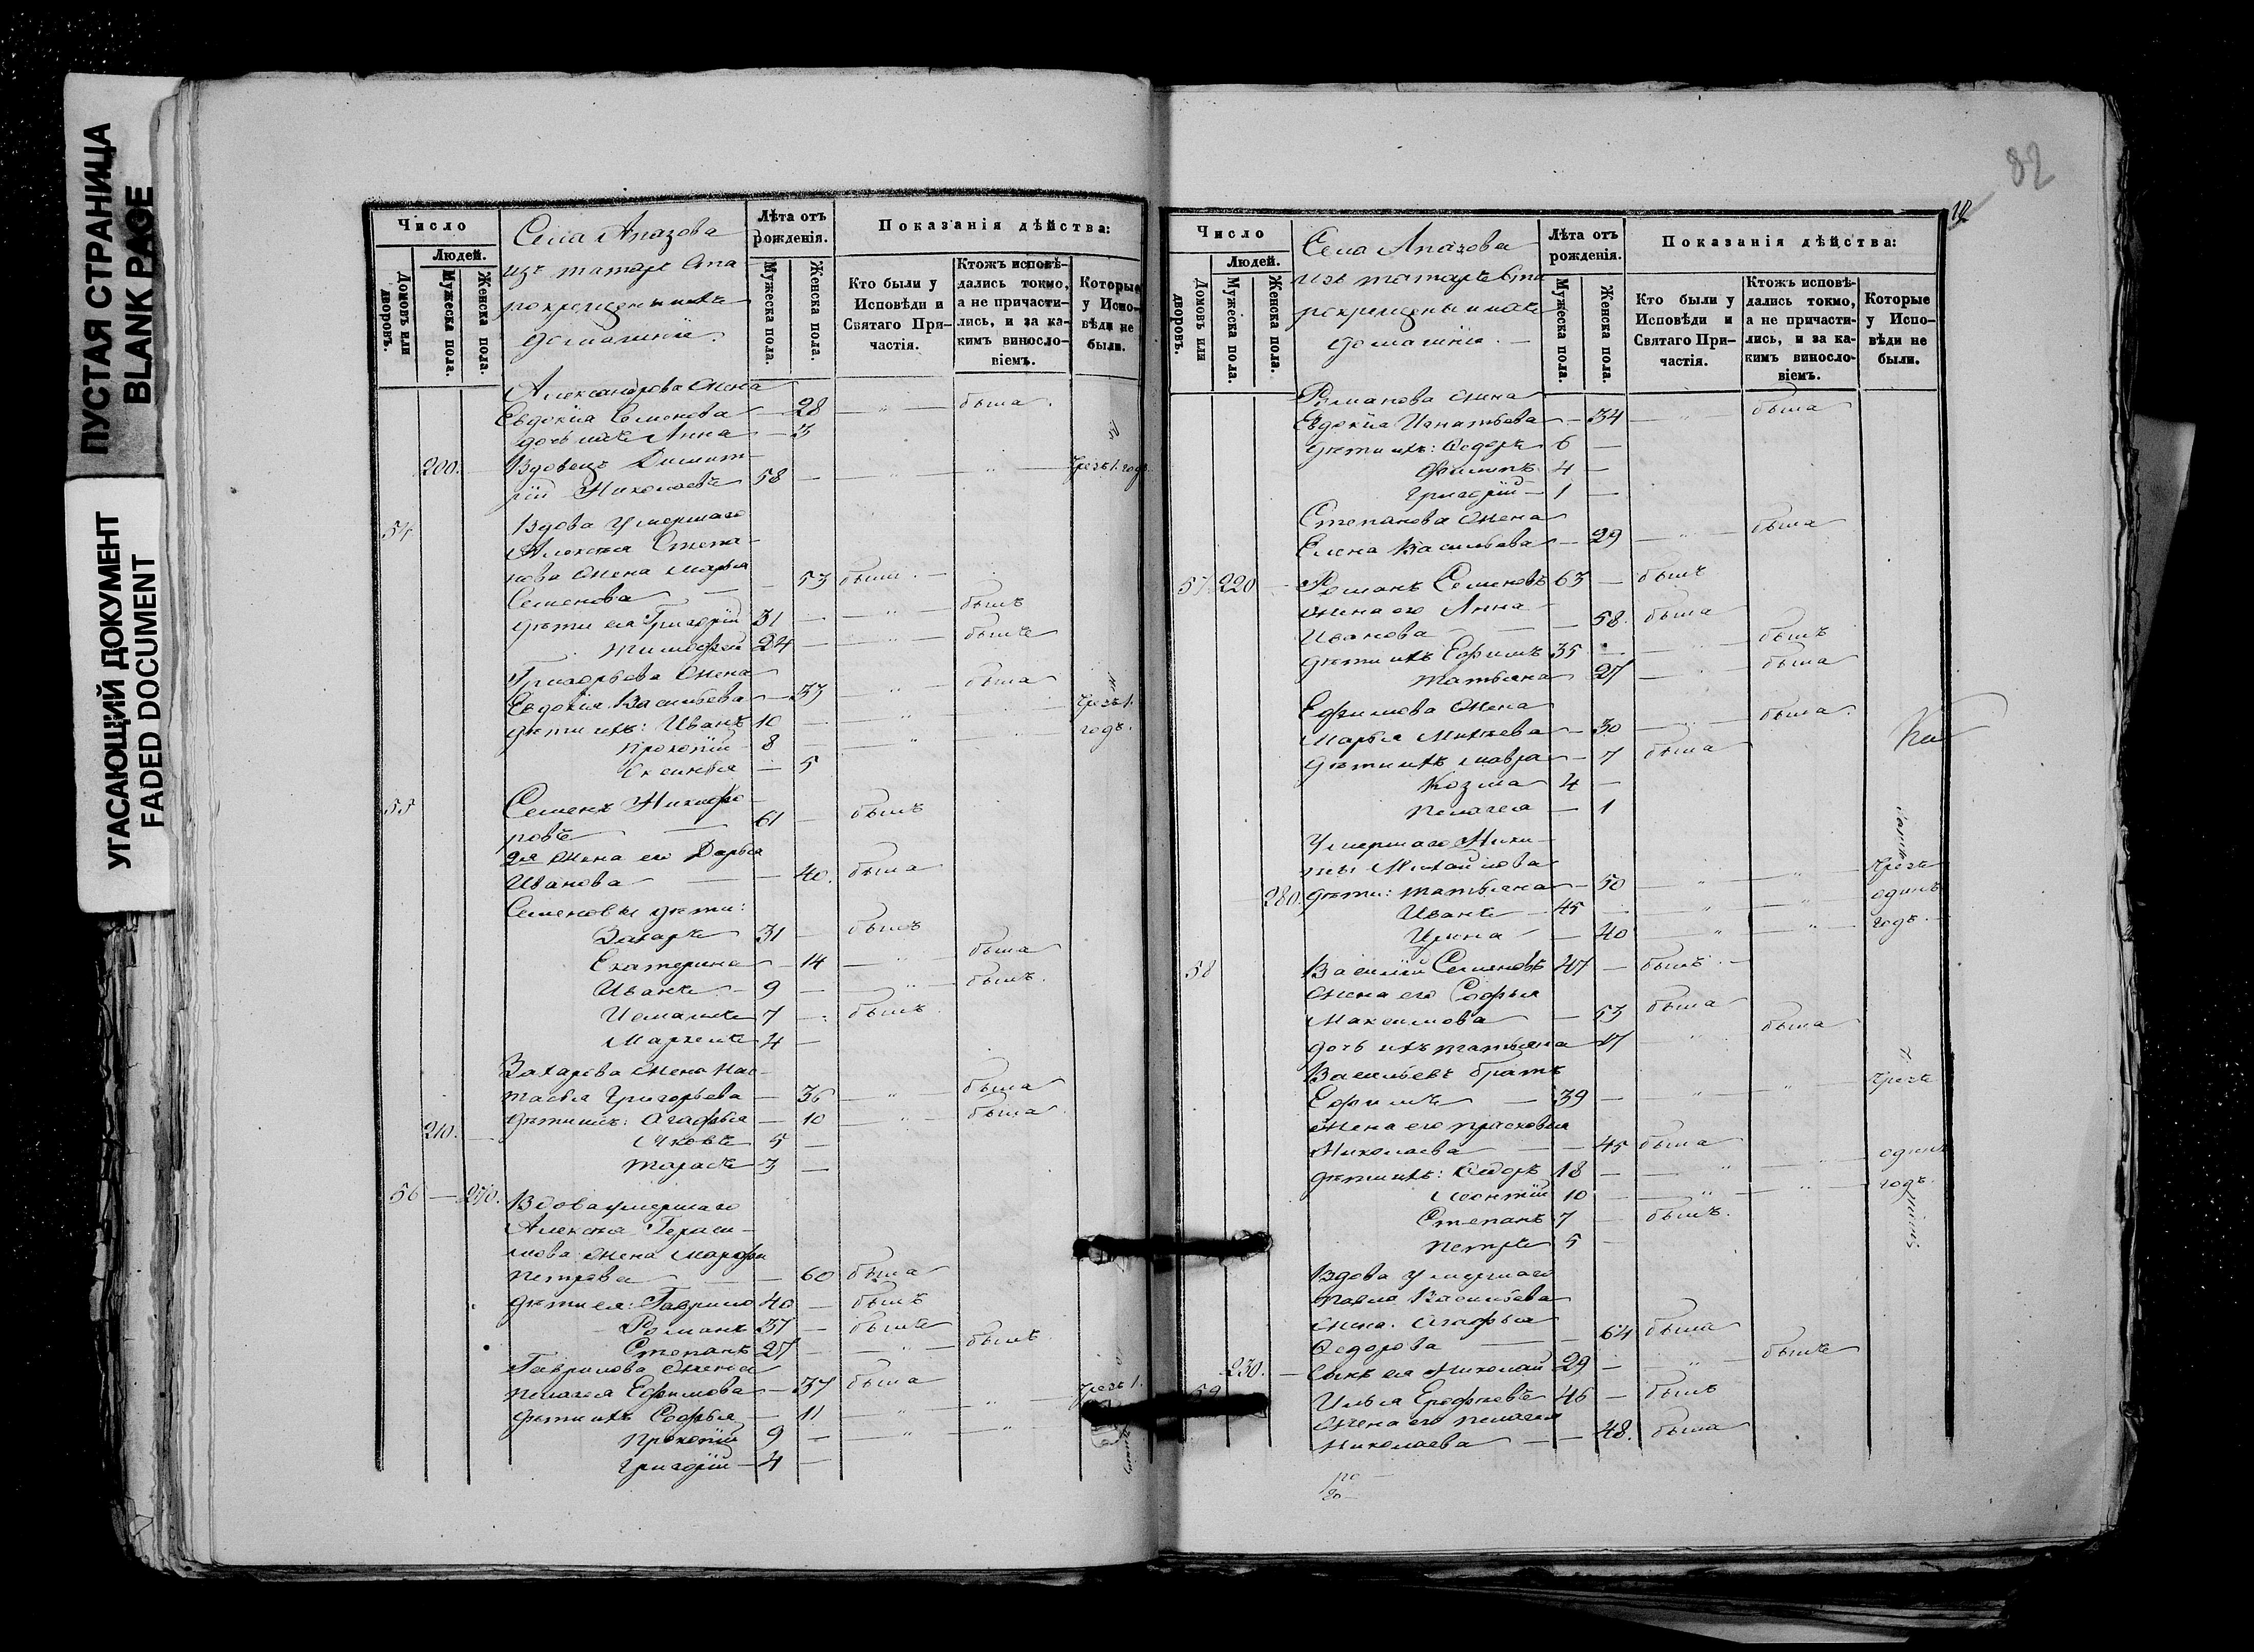 ПУСТАЯ СТРАНИЦА
BLANK PAGE
УГАСАЮЩИЙ ДОКУМЕНТ
FADED DOCUMENT
Число
Людей.
Домовъ или дворовъ.
Мужеска пола.
Женска пола.
Села Апазова
изъ татаръ Ста
рокрещеныхъ
домашніи.
Лѣта отъ рожденія.
Мужеска пола.
Женска пола.
Показанія дѣйства:
Кто были у Исповѣди и Святаго Причастія.
Ктожъ исповѣдались токмо, а не причастились, и за какимъ винословіемъ.
Которые у Исповѣди не были.
Александрова жена
Евдокія Семенова — 28 — „ — была
дочь ихъ Анна — 3
200. Вдовецъ Димит-
рій Николаевъ 58 — „ — „ — Чрезъ 1. годъ
54 Вдова умершаго
Алексѣя Степа-
нова жена Марья
Семенова — 53 была
дѣти ея Григорій 31 — „ — былъ
Тимофей 24 — „ — былъ
Григорьева жена
Евдокія Васильева — 33 — „ — была
дѣти ихъ: Иванъ 10 — „ — Чрезъ 1.
Прокопій 8 — „ — годъ.
Ксенья — 5
55 Семенъ Никифо-
ровъ 61 — былъ
2я жена его Дарья
Иванова — 40. была
Семеновы дѣти:
Захаръ 31 — былъ
Екатерина — 14 — „ — была
Иванъ 9 — „ — былъ.
7 — былъ
4 —
Захарова жена Нас-
тасья Григорьева — 36 — „ — была
дѣти ихъ: Агафья — 10 — „ — была
210. Яковъ 5 —
Тарасъ 3 —
56 — 270. Вдова умершаго
Алексѣя Гераси-
мова жена Марфа
Петрова — 60 была
дѣти ея: Гаврило 40 — былъ
Романъ 37 — былъ
Степанъ 27 — „ — былъ
Гаврилова жена
Пелагея Ефимова — 37 была
дѣти ихъ Софья — 11 — „ — „ — Чрезъ 1.
Прокопій 9 — „ — „
Григорій 4 —
82
Число
Людей.
Домовъ или дворовъ.
Мужеска пола.
Женска пола.
Села Апазова
изъ татаръ Ста
рокрещеныхъ
домашніи.
Лѣта отъ рожденія.
Мужеска пола.
Женска пола.
Показанія дѣйства:
Кто были у Исповѣди и Святаго Причастія.
Ктожъ исповѣдались токмо, а не причастились, и за какимъ винословіемъ.
Которые у Исповѣди не были.
Романова жена
Евдокія Игнатьева — 34 — „ — была
дѣти ихъ: Ѳедоръ 6 —
Филиппъ 4 —
Григорій 1 —
Степанова жена
Елена Васильева — 29 — „ — была
57. 220 — Романъ Семеновъ 63 — былъ
жена его Анна
Иванова — 58. была
дѣти ихъ Ефимъ 35 — былъ
Татьяна 27 — „ — была
Ефимова жена
Марья Михѣева — 30 — „ — была.
дѣти ихъ Мавра — 7 была
Козма 4 —
Пелагея — 1
Умершаго Ники-
ты Михайлова
280. дѣти: Татьяна — 50 — „ — „ — Чрезъ
Иванъ 45 — „ — „ — одинъ
Ирина — 40 — „ — „ — годъ.
58 Василій Семеновъ 47 — былъ
жена его Софья
Максимова — 53 была
дочь ихъ Татьяна — 17 — „ — была
Васильевъ братъ
Ефимъ 39 — „ — „ — Чрезъ
жена его Прасковья
Николаева — 45 была
дѣти ихъ: Сидоръ 18 — „ — „ — одинъ
Леонтій 10 — „ — „ — годъ.
Степанъ 7 — былъ.
Петръ 5 —
Вдова умершаго
Павла Васильева
жена Агафья
Ѳедорова — 64 была
230. — Сынъ ея Николай 29 — „ — былъ
59 Илья Ерофѣевъ 46 — былъ
жена его Пелагея
Николаева — 48. была